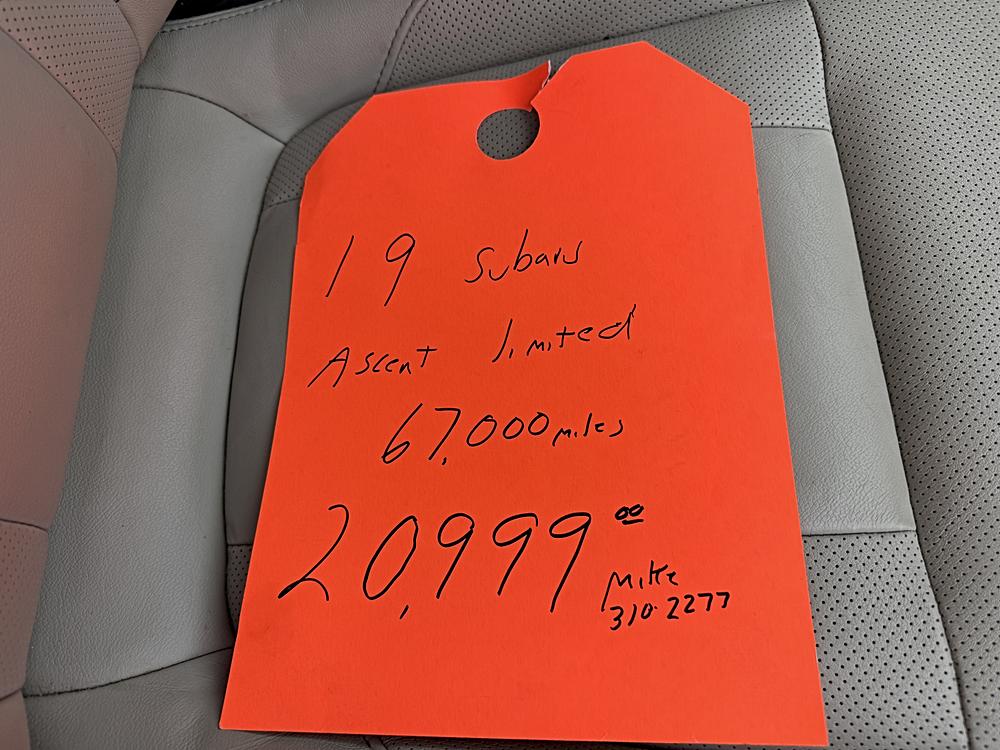 19 Subaru
Ascent limited
67,000 miles
20,999.00
Mike
310-2277